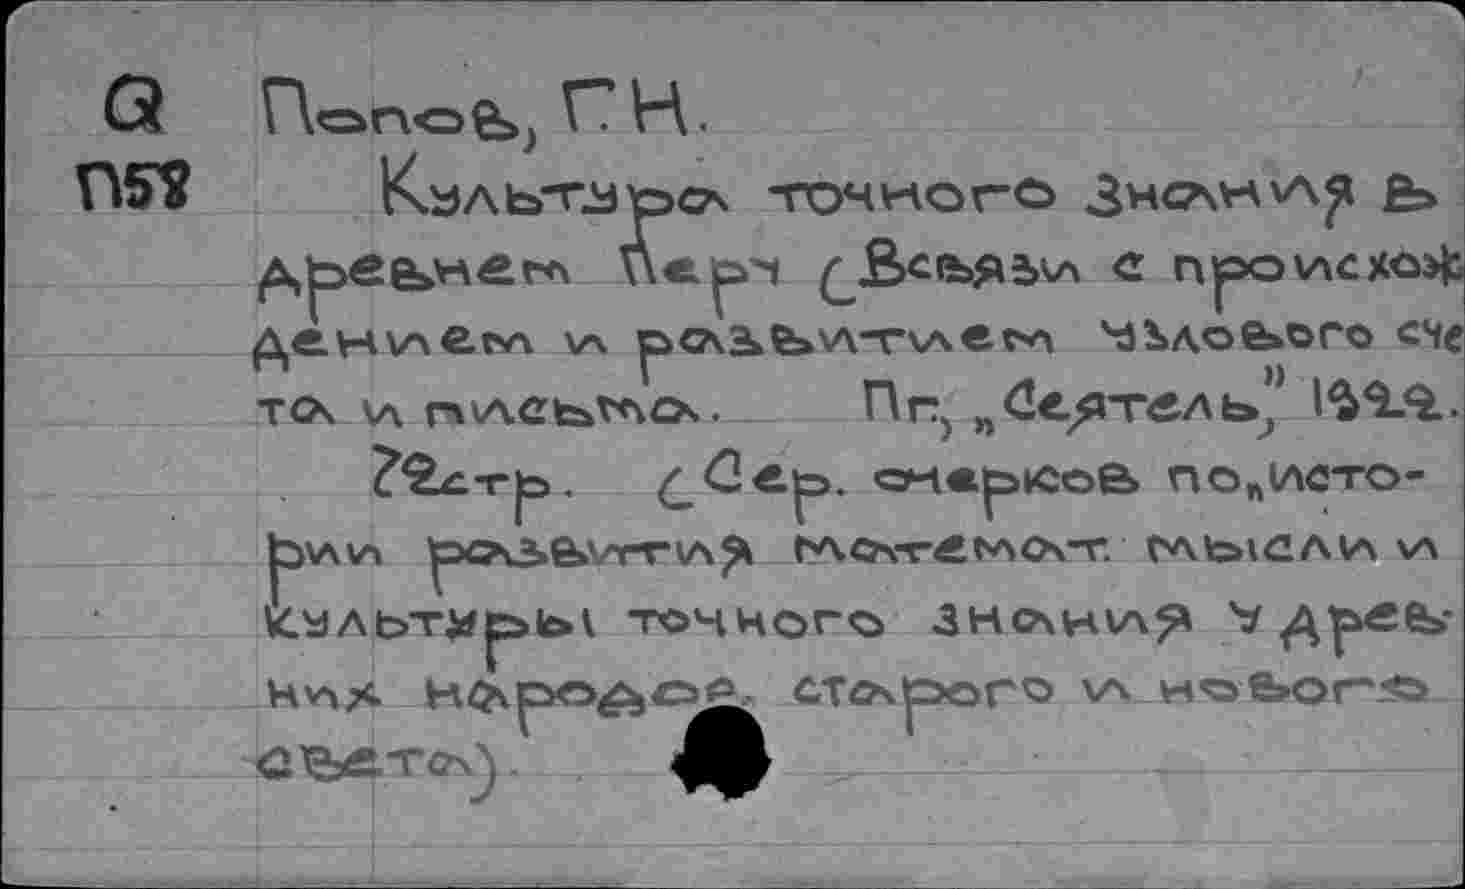 Q Попов, Г. Н.
П58 Культура точного знания в
древнем Перу (В связи с происхож
дением и развитием узлового сче
та и письма. Пг., „Сеятель”, 1922.
72стр. (Сер. очерков по „исто-
рии развития математ. мысли и
культуры точного знания у древ-
них народов. старого и нового
света).